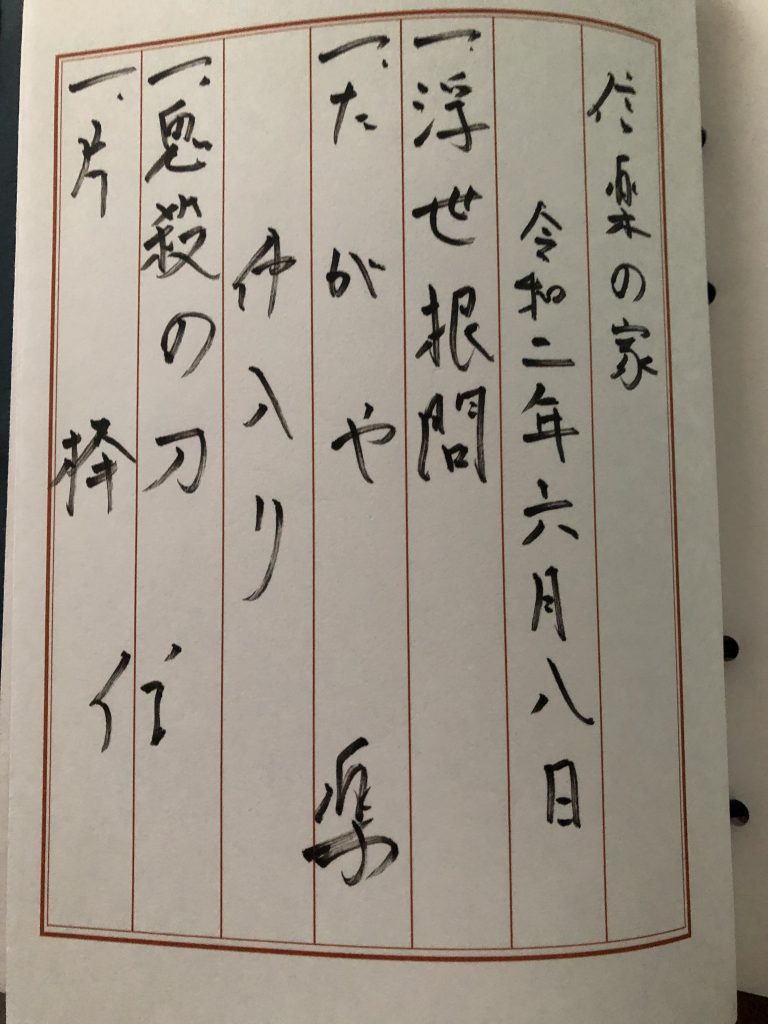 信楽の家
令和二年六月八日
一、浮世根問
一、たがや
楽
仲入り
一、鬼殺の刀
一、片棒
信